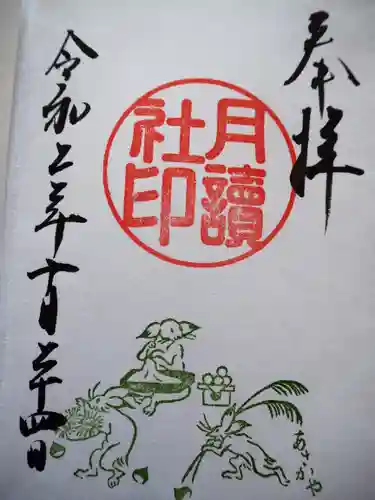 奉拝
月讀
社印
令和二年十月二十四日
あさがや